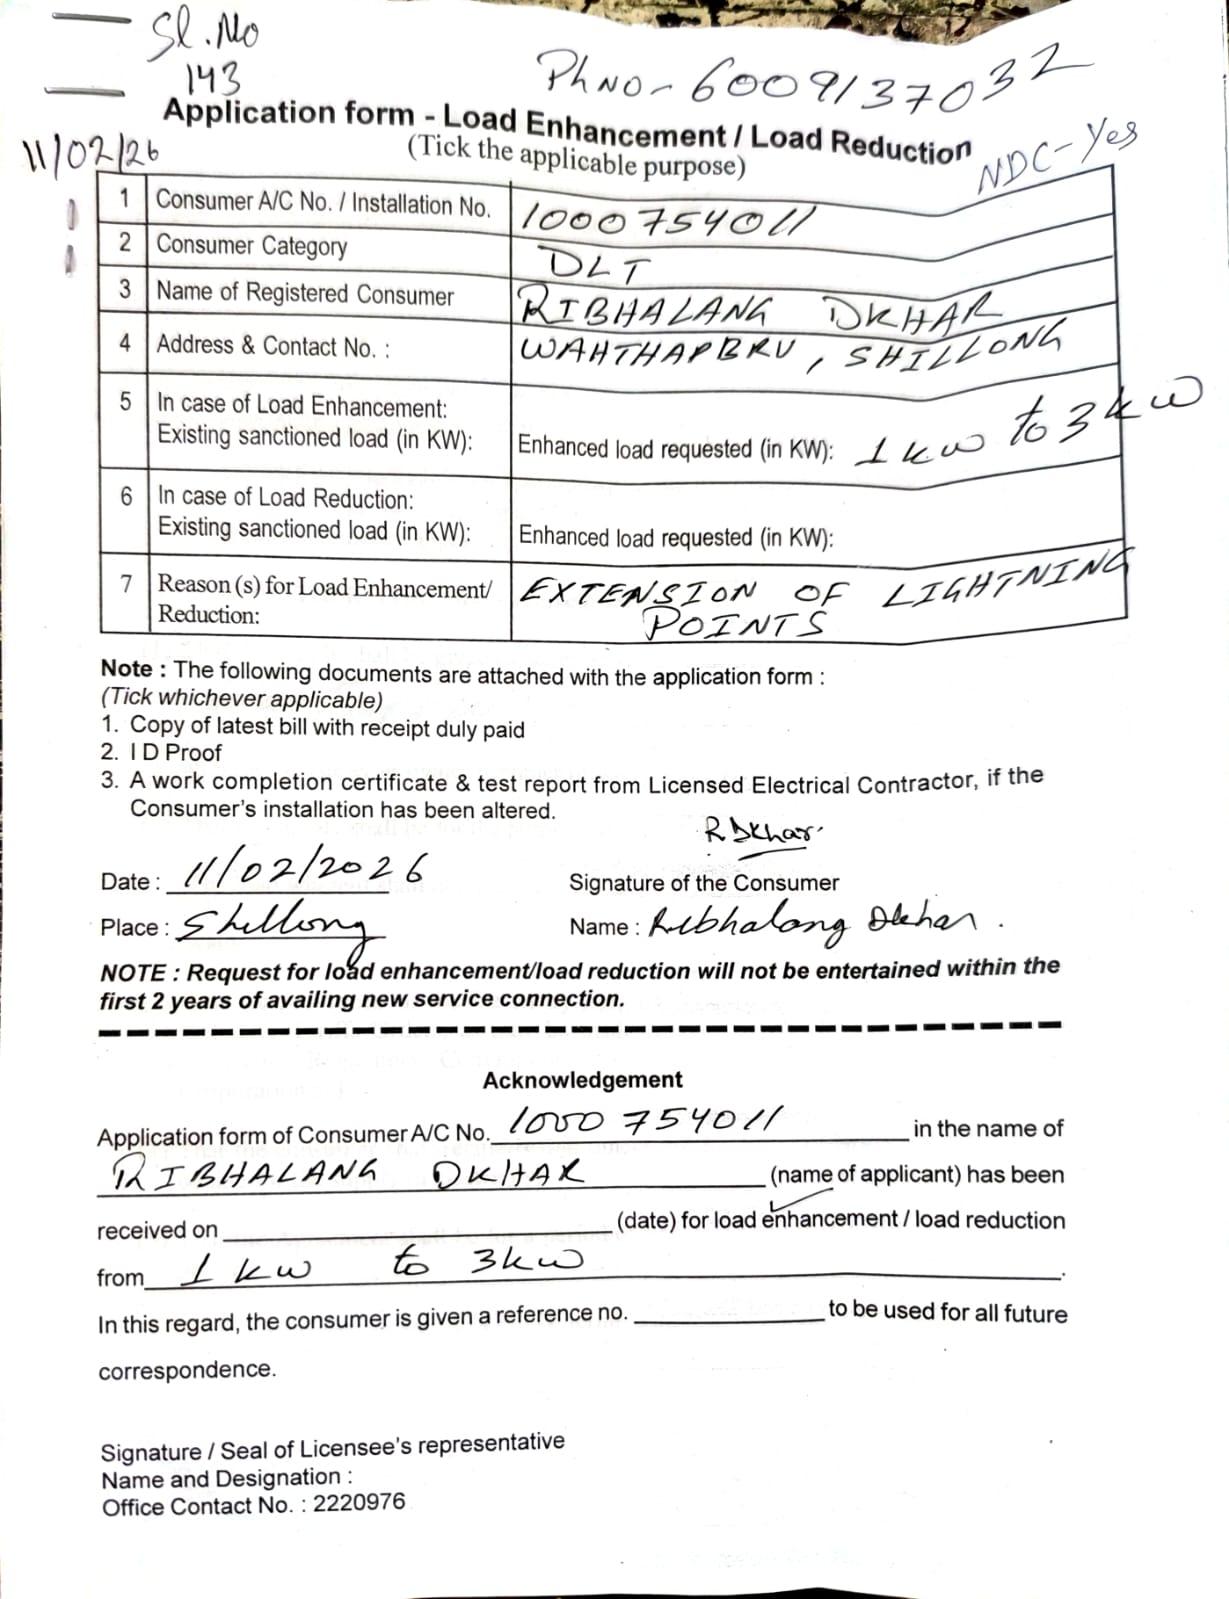 Sl. No
143
Ph No - 6009137032
Application form - Load Enhancement / Load Reduction
(Tick the applicable purpose)
11/02/26
NDC - Yes
1 Consumer A/C No. / Installation No. 1000754011
2 Consumer Category DLT
3 Name of Registered Consumer RIBHALANG DKHAR
4 Address & Contact No. : WAHTHAPBRU, SHILLONG
5 In case of Load Enhancement:
Existing sanctioned load (in KW): Enhanced load requested (in KW): 1 kw to 3 kw
6 In case of Load Reduction:
Existing sanctioned load (in KW): Enhanced load requested (in KW):
7 Reason (s) for Load Enhancement/ EXTENSION OF LIGHTNING
Reduction: POINTS
Note : The following documents are attached with the application form :
(Tick whichever applicable)
1. Copy of latest bill with receipt duly paid
2. I D Proof
3. A work completion certificate & test report from Licensed Electrical Contractor, if the
Consumer's installation has been altered.
R Dkhar
Date : 11/02/2026 Signature of the Consumer
Place : Shillong Name : Ribhalang Dkhar .
NOTE : Request for load enhancement/load reduction will not be entertained within the
first 2 years of availing new service connection.
Acknowledgement
Application form of Consumer A/C No. 1000754011 in the name of
RIBHALANG DKHAR (name of applicant) has been
received on (date) for load enhancement / load reduction
from 1 kw to 3kw.
In this regard, the consumer is given a reference no. to be used for all future
correspondence.
Signature / Seal of Licensee's representative
Name and Designation :
Office Contact No. : 2220976